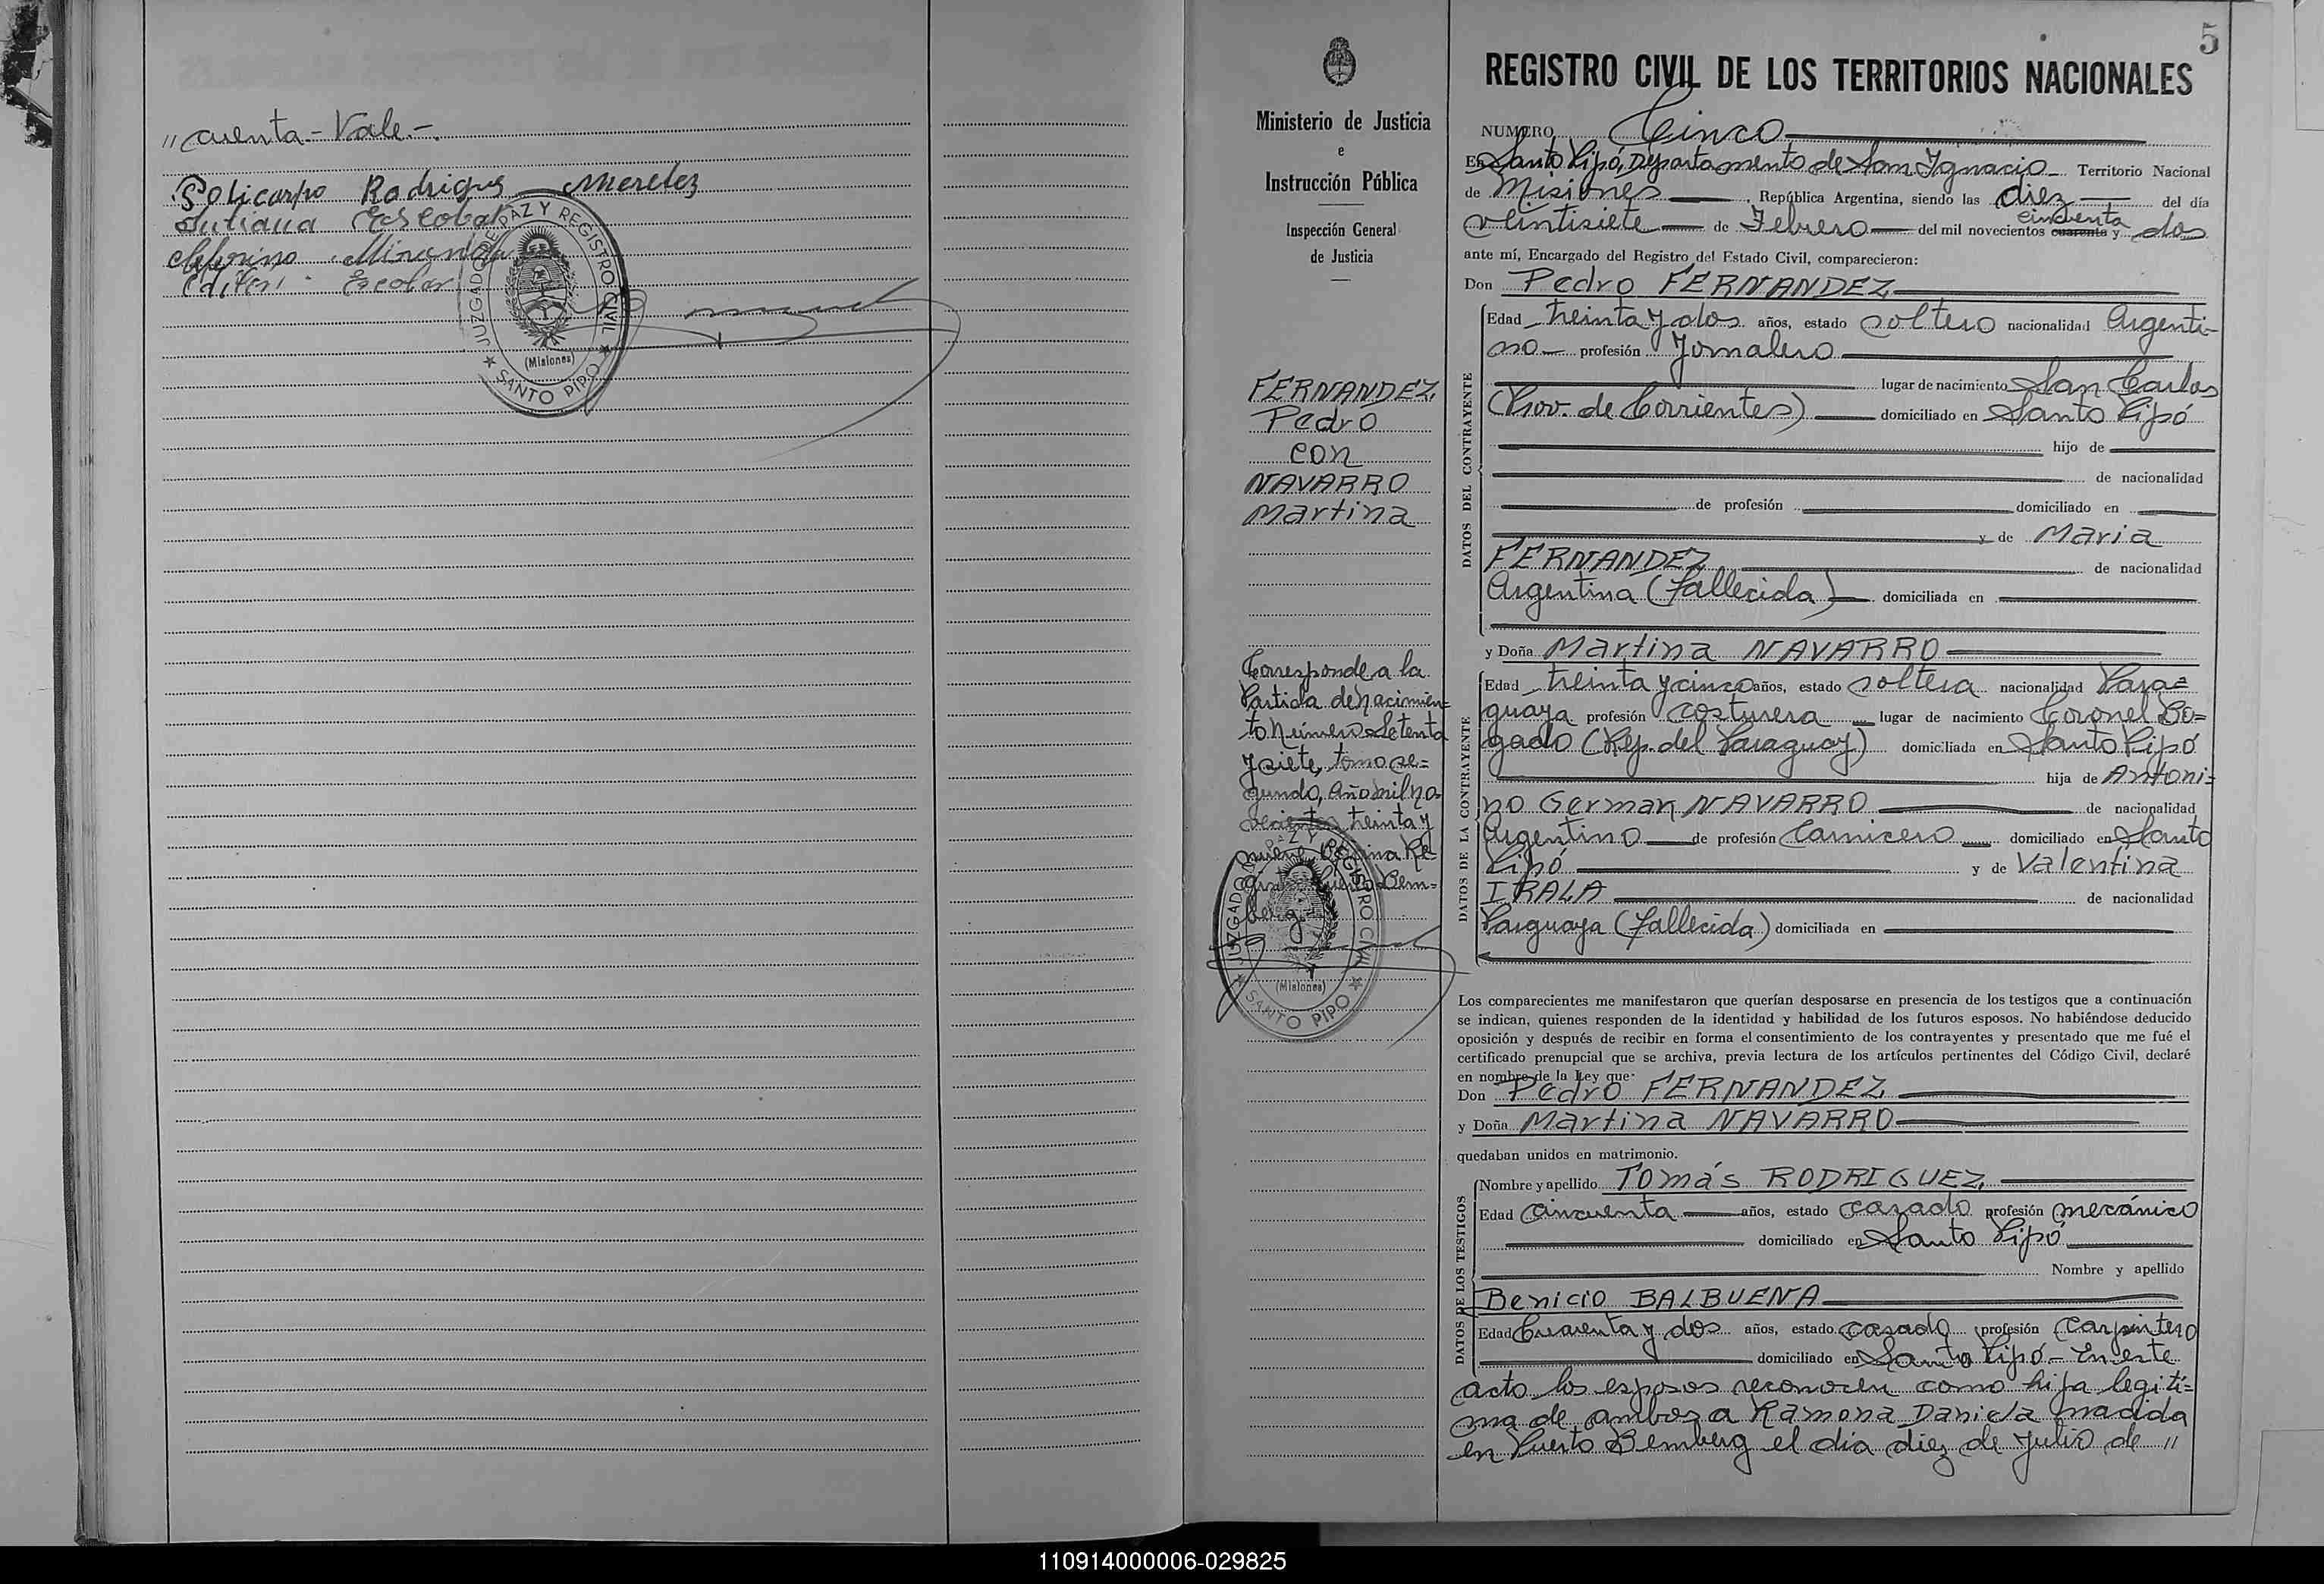 "cuenta - Vale.-
Policarpo Rodrigues Merelez
Juliana Escobar
Ceferino Miranda
Escobar
JUZGADO DE PAZ Y REGISTRO CIVIL
(Misiones)
SANTO PIPO
5
Ministerio de Justicia
e
Instrucción Pública
Inspección General
de Justicia
FERNANDEZ
Pedro
con
NAVARRO
Martina
Corresponde a la
Partida de nacimien=
to Número Setenta
y siete, tomo se=
gundo, Año mil no=
vecientos treinta y
nueve
Bem=
berg
JUZGADO DE PAZ Y REGISTRO CIVIL
(Misiones)
SANTO PIPO
REGISTRO CIVIL DE LOS TERRITORIOS NACIONALES
NUMERO Cinco
En Santo Pipó, Departamento de San Ignacio Territorio Nacional
de Misiones, República Argentina, siendo las diez del día
cincuenta
veintisiete de Febrero del mil novecientos cuarenta y dos
ante mí, Encargado del Registro del Estado Civil, comparecieron:
Don Pedro FERNANDEZ
DATOS DEL CONTRAYENTE
Edad treinta y dos años, estado soltero nacionalidad Argenti-
no profesión Jornalero
lugar de nacimiento San Carlos
(Prov. de Corrientes) domiciliado en Santo Pipó
hijo de
de nacionalidad
de profesión domiciliado en
y de Maria
FERNANDEZ de nacionalidad
Argentina (fallecida) domiciliada en
y Doña Martina NAVARRO
DATOS DE LA CONTRAYENTE
Edad treinta y cinco años, estado soltera nacionalidad Para=
guaya profesión costurera lugar de nacimiento Coronel Bo=
gado (Rep. del Paraguay) domiciliada en Santo Pipó
hija de Antoni=
no German NAVARRO de nacionalidad
Argentino de profesión Carnicero domiciliado en Santo
Pipó y de Valentina
IRALA de nacionalidad
Parguaya (fallecida) domiciliada en
Los comparecientes me manifestaron que querían desposarse en presencia de los testigos que a continuación
se indican, quienes responden de la identidad y habilidad de los futuros esposos. No habiéndose deducido
oposición y después de recibir en forma el consentimiento de los contrayentes y presentado que me fué el
certificado prenupcial que se archiva, previa lectura de los artículos pertinentes del Código Civil, declaré
en nombre de la Ley que:
Don Pedro FERNANDEZ
y Doña Martina NAVARRO
quedaban unidos en matrimonio.
DATOS DE LOS TESTIGOS
Nombre y apellido Tomás RODRIGUEZ
Edad cincuenta años, estado casado profesión mecánico
domiciliado en Santo Pipó
Nombre y apellido
Benicio BALBUENA
Edad Cuarenta y dos años, estado casado profesión carpintero
domiciliado en Santo Pipó - En este
acto los esposos reconocen como hija legiti=
ma de ambos a Ramona Daniela nacida
en Puerto Bemberg el día diez de Julio de "
110914000006-029825